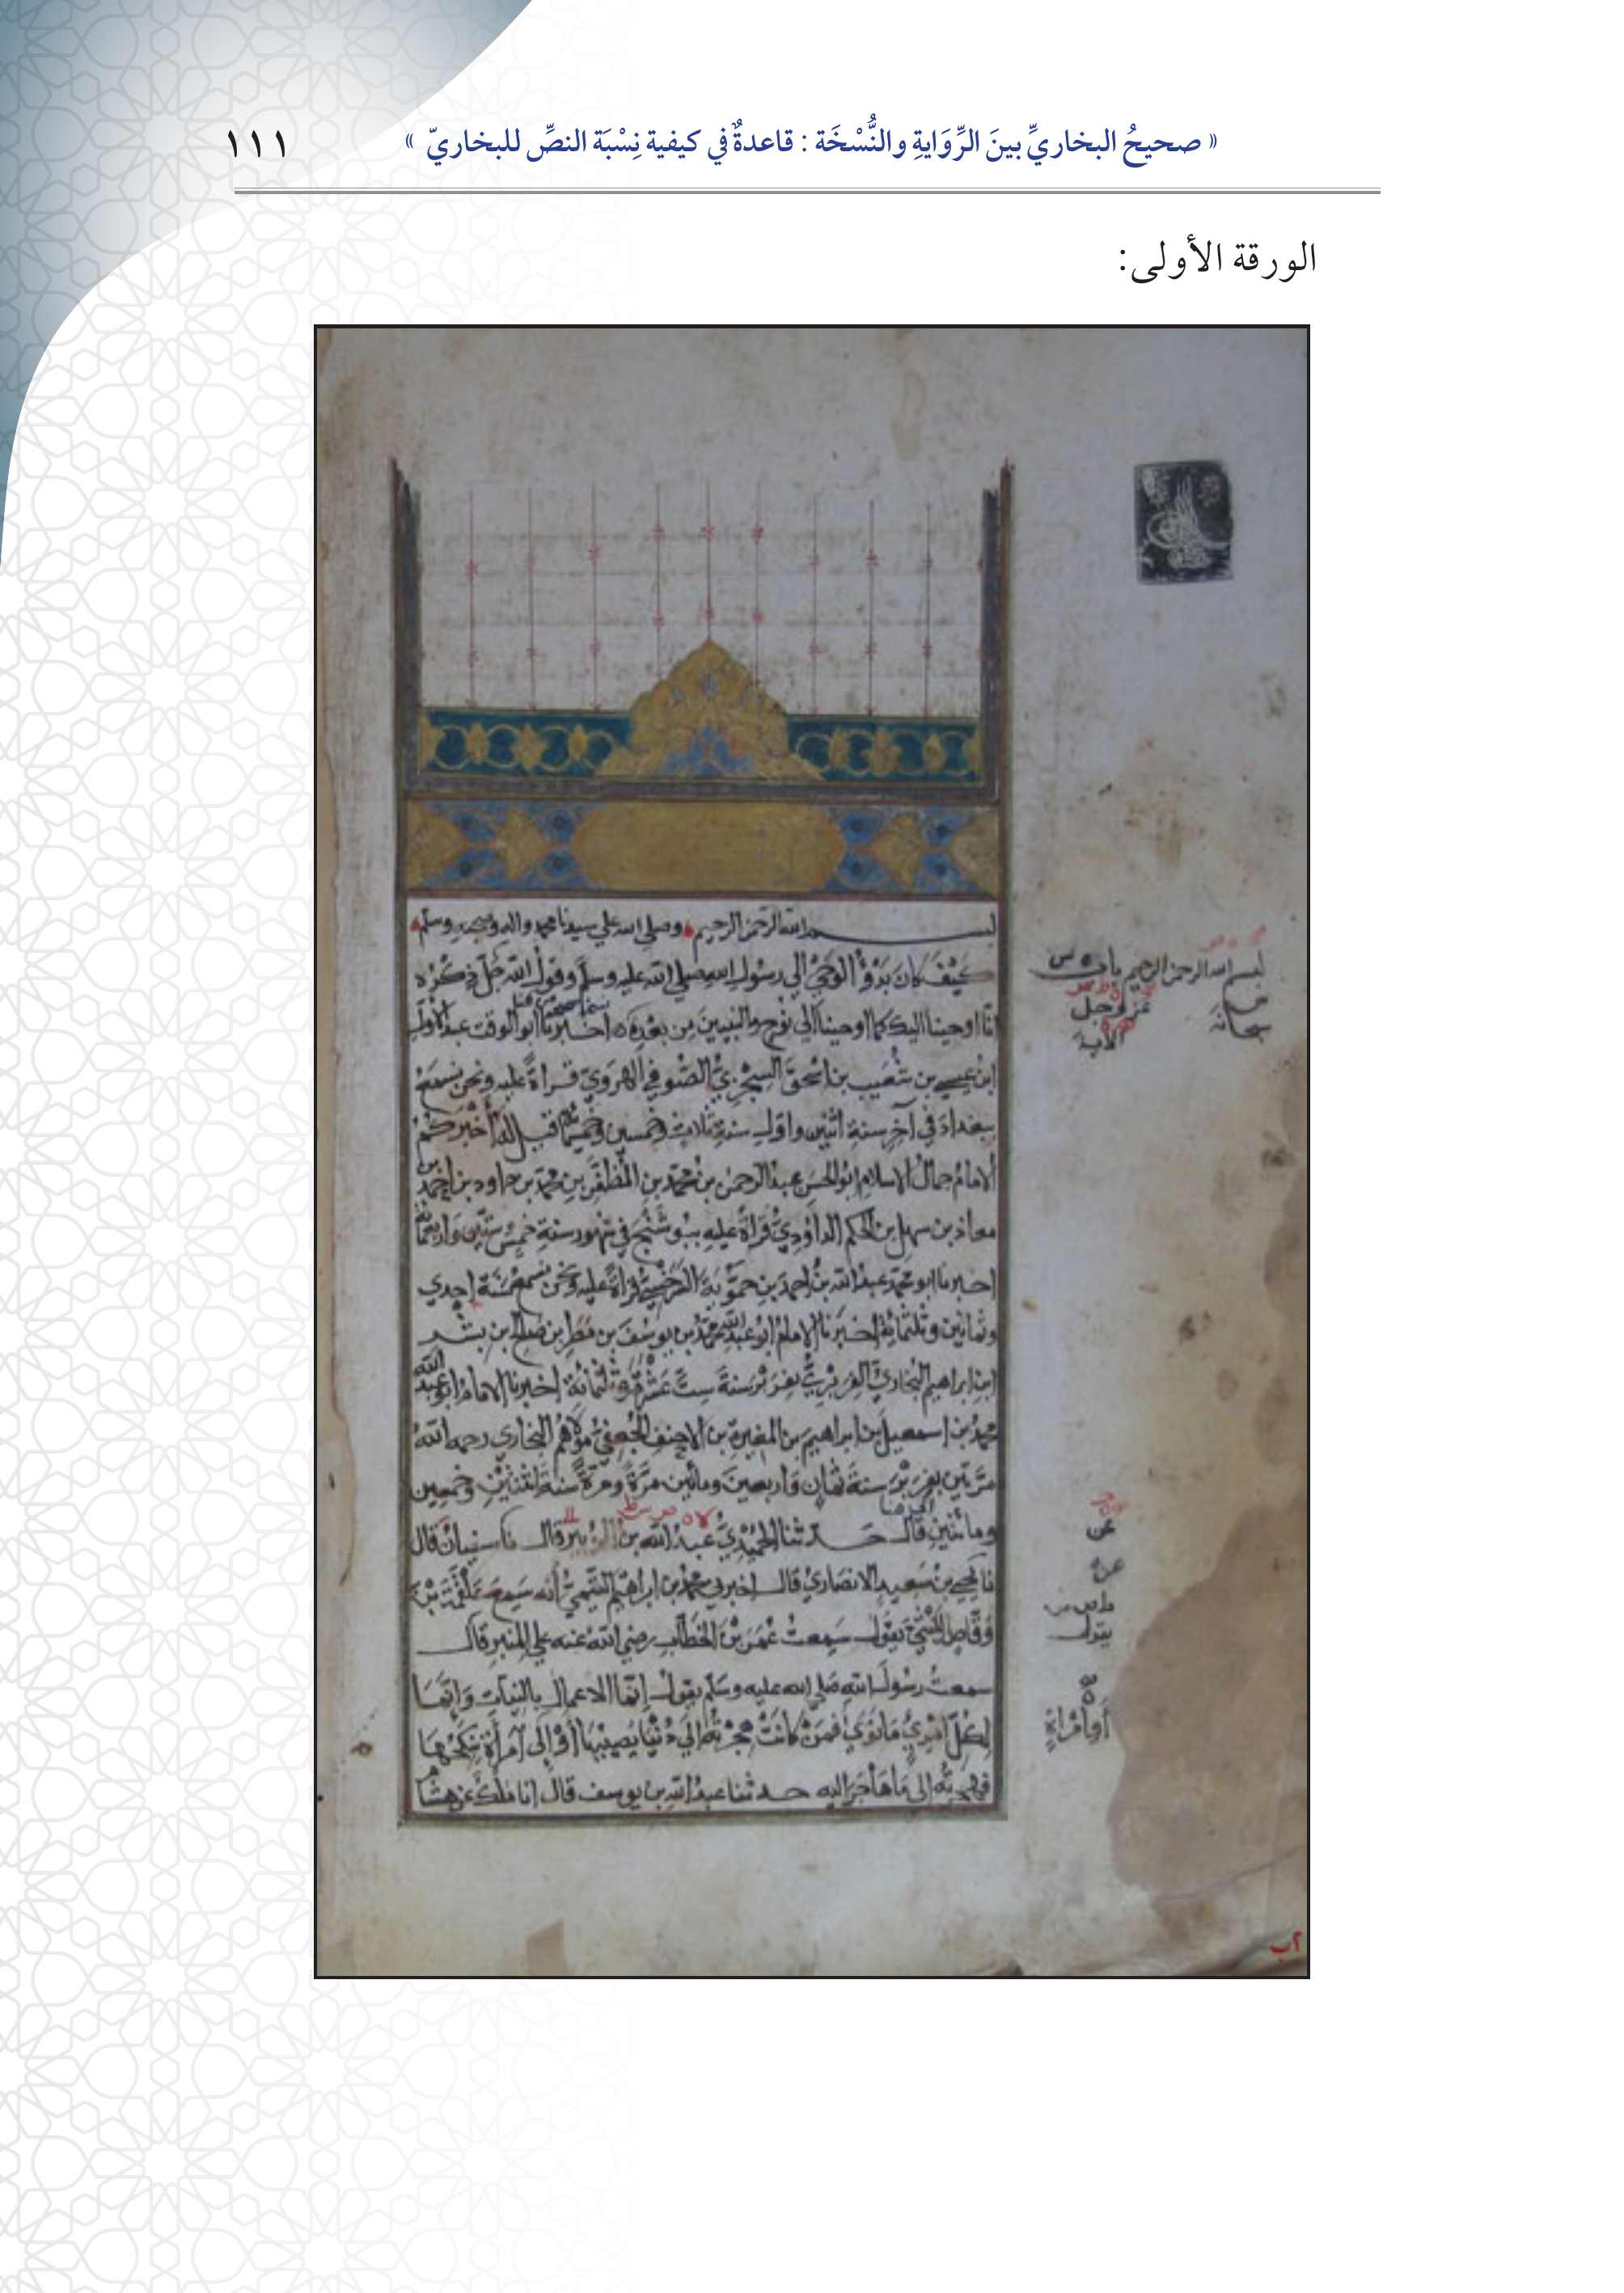 « صحيحُ البخاريِّ بينَ الرِّوَايةِ والنُّسْخَة : قاعدةٌ في كيفية نِسْبَة النصِّ للبخاريّ »
١١١
الورقة الأولى:
بسم الله الرحمن الرحيم وصلى الله علي سيدنا محمد واله وصحبه وسلم
كَيْفَ كان بَدْؤُ الوَحْيِ الي رسولِ الله صلي الله عليه وسلم وقولُ الله جَلَّ ذِكْرُهُ
انّا اوحينا اليك كما اوحينا الي نوح والنبيين مِن بعْدِهِ اخبرنا ابو الوقت عبد الاول
ابنُ عيسي بن شُعَيب بن اسْحقَ السِّجْزِيُّ الصُّوفي الهَرَوِيّ قراةً عليه ونحن نسمَعُ
ببغدادَ في آخر سنةِ اثنين واول سنةِ ثلاث وخمسين وخمسمائة قيل له أخْبَرَكُمُ
الامامُ جمالُ الاسلامِ ابو الحسَن عبدُ الرحمن بن محمّد بنِ المُظَفَّرِ بن محمّد بن داود بن احمد بن
معاذ بن سهل بن الحكم الداوُدِيُّ قراةً عليهِ ببوشَنْجَ في شهور سنةِ خمسٍ وستّين واربعمائة
اخبرنا ابو محمّد عبدُ الله بنُ احمدَ بنِ حَمُّويَة السَّرَخْسِيُّ قراةً عليه ونحن نسمع سَنَة إحدي
وثمانين وثلثمائة اخبرنا الامامُ ابو عبد الله محمّدُ بن يوسُفَ بن مَطَرِ بن صالح بن بشر
ابنِ ابراهيم البخاريّ الفِرَبْرِيُّ بفِرَبْرَ سنةَ ستَّ عَشْرَةَ وثلثمائة اخبرنا الامامُ ابو عبد الله
محمدُ بن اسمعيل بن ابراهيمَ بن المغيرةِ بن الاحنف الجُعْفيُّ مولاهُم البخاري رحمه اللهُ
مرَّتين بفربْرَ سنةَ ثمانٍ وَاربعينَ ومائتين مرَّةً ومرَّةً سنةَ اثنَتَيْنِ وخمسين
ومائتين قال حدثنا الحُمَيْدِيُّ عبدُ الله بن الزُّبير قال نا سفيانُ قال
نا يحيي بن سَعيدٍ الانصاريّ قال اخبرني محمّد بن ابراهيمَ التَّيْمِيُّ أنه سَمِعَ عَلْقَمَةَ بْنَ
وَقَّاصٍ اللَّيْثِيَّ يقول سَمِعتُ عُمَرَ بْنَ الخَطَّاب رضي اللهُ عنه علي المنبر قال
سمعتُ رسُولَ اللهِ صَلي الله عليه وسَلّم يقول إنّما الاعمال بالنيّاتِ وَانّمَا
لِكُلّ امْرِئٍ مَا نَوَي فمَنْ كَانَتْ هِجْرَتُهُ إلَي دُنْيَا يُصِيْبُهَا أَوْ إلى امْرأَة يَنْكِحُهَا
فهجرتُه إلى مَا هَاجَرَ اليه حدثنا عبدُ اللهِ بن يوسف قال انا مَلكٌ عن هشام
بسم الله الرحمن الرحيم باب
عز وجل
سبحانه
الآية
عن
يقول
أو امْرَاةٍ
٢ب